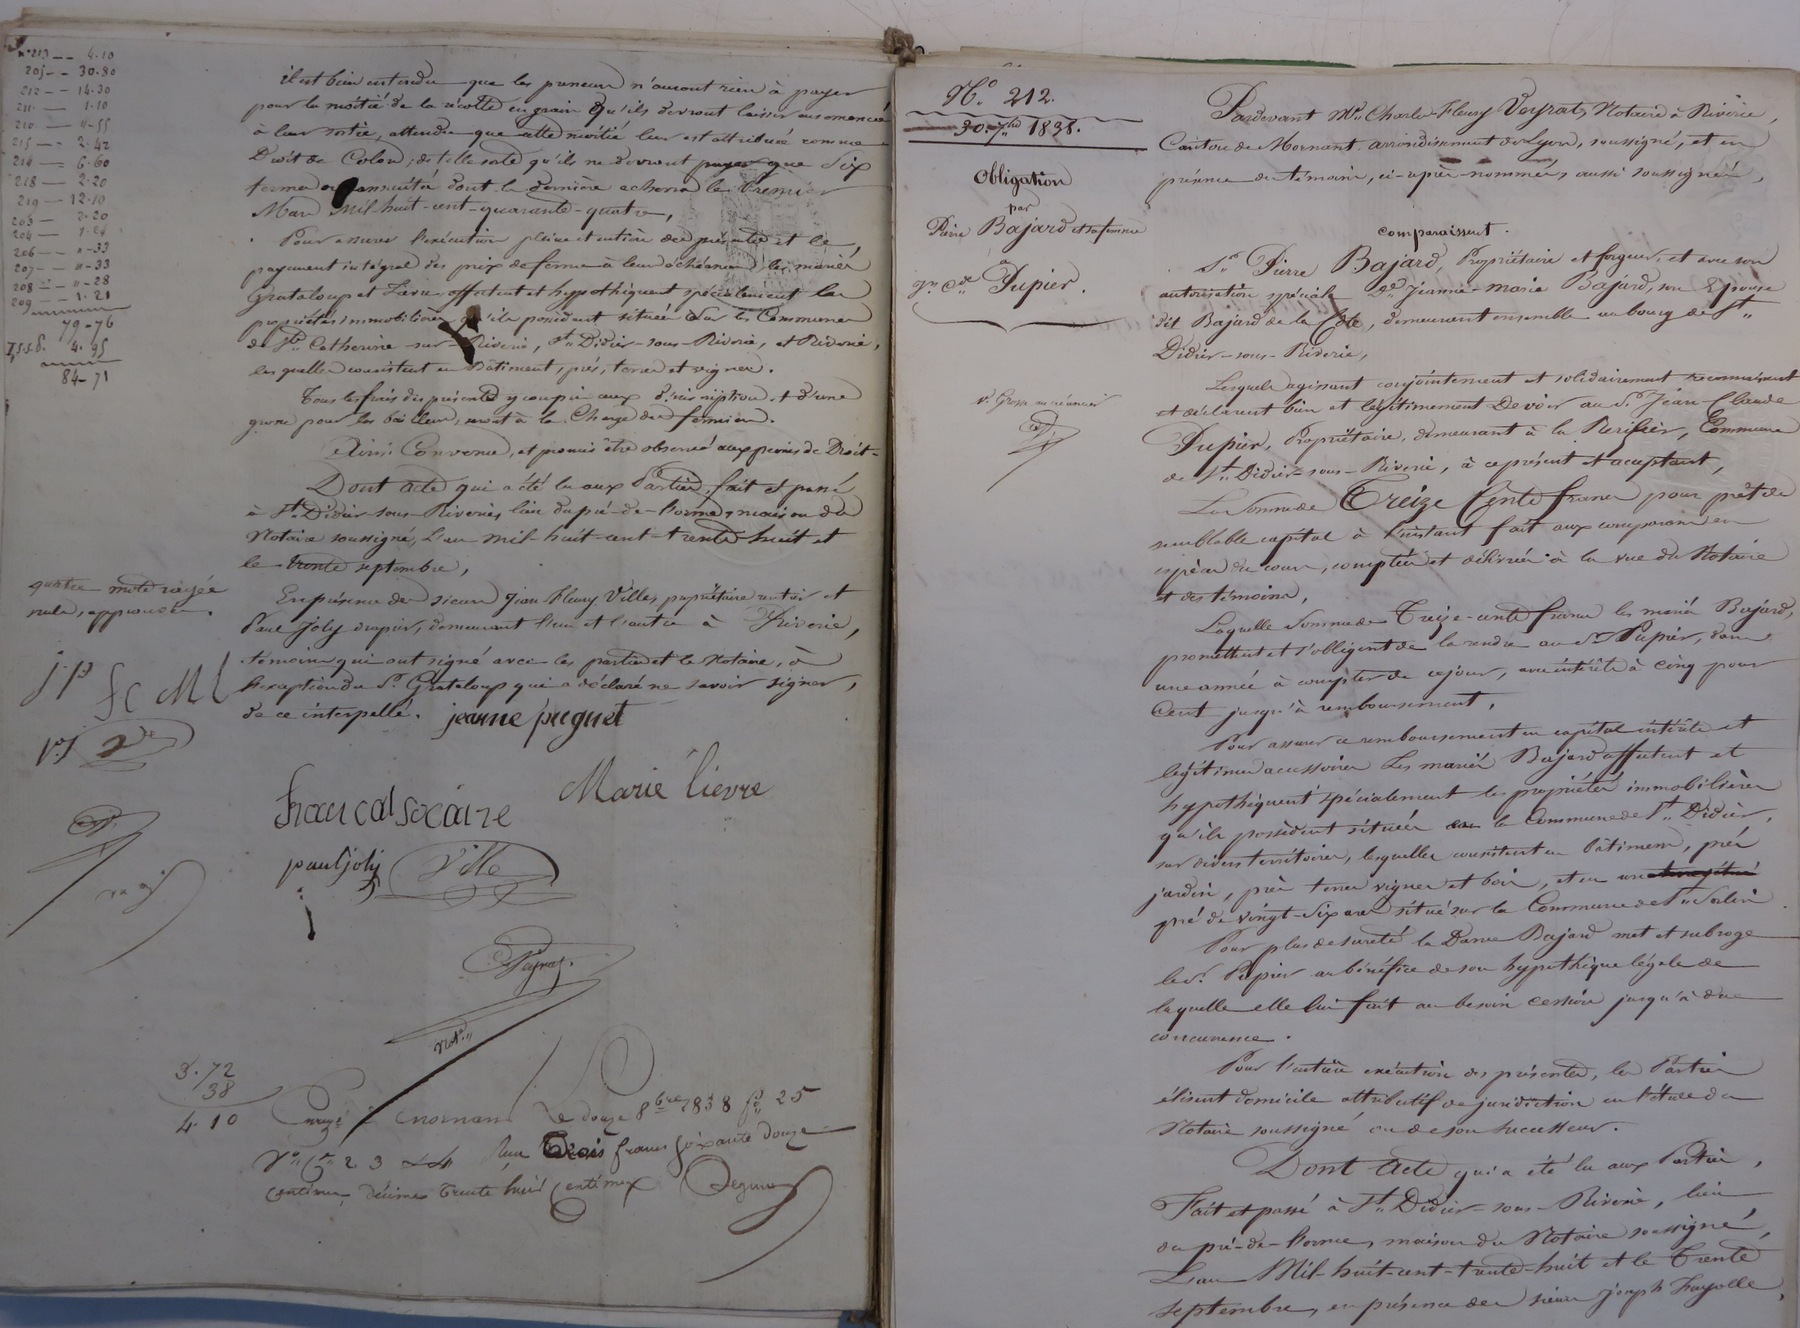 n° 213 -- 4.10
205 -- 30.80
212 -- 14.30
211 -- 1.10
210 -- 4-55
215 -- 2.42
214 -- 6.60
218 -- 2.20
219 -- 12.10
203 -- 2.20
204 -- 1.21
206 -- "-33
207 -- "-33
208 -- "-28
209 -- 1.21
79-76
4.95
84-71
il est bien entendu que les preneurs n'auront rien à payer
pour la moitié de la récolte en grain qu'ils devront laisser ensemencée
à leur sortie, attendu que cette moitié leur est attribuée comme
Droit de Colon; de telle sorte qu'ils ne devront payer que Six
termes ou annuités dont la dernière echerra le Premier
Mars Mil-huit-cent-quarante-quatre,
Pour assurer l'exécution pleine et entière des présentes et le
payement intégral des prix de ferme à leurs échéances les mariés
Grataloup et Lievre affectent et hypothèquent spécialement les
propriétés immobilières qu'ils possèdent situées sur les Communes
de Ste Catherine-sur-Riverie, St Didier-sous-Riverie, et Riverie,
lesquelles consistent en Bâtiments, prés, terres et vignes.
Tous les frais des présentes y compris ceux d'inscription et d'une
grosse pour les bailleurs, sont à la Charge des fermiers.
Ainsi Convenu, et promis être observé aux peines de Droit.
Dont acte qui a été lu aux Parties, fait et passé
à St Didier-sous-Riverie, lieu du pré-de-l'orme, maison du
Notaire soussigné, L'an mil-huit-cent-trente-huit et
le trente septembre,
En présence des sieurs Jean Fleury Ville, propriétaire rentier et
Paul Joly drapier, demeurant l'un et l'autre à Riverie,
temoins qui ont signé avec les parties et le Notaire, à
l'exception du Sr Grataloup qui a déclaré ne savoir signer,
de ce interpellé. jeanne puguet
quatre mots rayés
nuls, approuvés.
j p fc M l
p.j
Marie lievre
paul joly Ville
Veyrat
Not.re
3.72
38
4.10
Enregé à Mornant Le douze 8bre 1838 f° 25
V° Ces 2 3 et 4 Reçu Trois francs soixante douze
centimes, décime trente huit centimes
N° 212.
30 7bre 1838.
Obligation
par
Pierre Bajard et sa femme
à
Jn Cde Pupier.
Pardevant Me Charles-Fleury Veyrat, Notaire à Riverie,
Canton de Mornant, arrondissement de Lyon, soussigné, et en
présence des témoins, ci-après-nommés, aussi soussignés,
comparaissent.
Sr Pierre Bajard, Propriétaire et forgeur, et avec son
autorisation spéciale De Jeanne-marie Bajard, son Epouse
dit Bajard de la Côte, demeurant ensemble au bourg de St
Didier-sous-Riverie,
Lesquels agissant conjointement et solidairement reconnaissent
et déclarent bien et légitimement Devoir au Sr Jean-Claude
Pupier, Propriétaire, demeurant à la Commune
de St Didier-sous-Riverie, à ce présent et acceptant,
La Somme de Treize Cents francs pour prêt de
semblable capital à l'instant fait aux comparans en
espèces du cours, comptées et délivrées à la vue du Notaire
et des témoins,
Laquelle Somme de Treize-cents francs les mariés Bajard,
promettent et s'obligent de la rendre au Sr Pupier, dans
une année à compter de ce jour, avec intérêts à cinq pour
Cent jusqu'à remboursement,
Pour assurer ce remboursement en capital intérêts et
légitimes accessoires Les mariés Bajard affectent et
hypothèquent spécialement les propriétés immobilières
qu'ils possèdent situées sur la Commune de St Didier,
sur divers territoires, lesquelles consistent en bâtimens, prés
jardin, prés terres vignes et bois, et en un
pré de vingt-six ares situé sur la Commune de St Sorlin
Pour plus de sureté la Dame Bajard met et subroge
le Sr Pupier au bénéfice de son hypothèque légale de
laquelle elle lui fait au besoin cession jusqu'à due
concurrence.
Pour l'entière exécution des présentes, les Parties
élisent domicile attributif de juridiction en l'étude du
Notaire soussigné ou de son successeur.
Dont Acte qui a été lu aux Parties,
Fait et passé à St Didier-sous-Riverie, lieu
du pré-de-l'orme, maison du Notaire soussigné,
L'an Mil-huit-cent-trente-huit et le Trente
septembre, en présence des sieurs Joseph Fayolle,